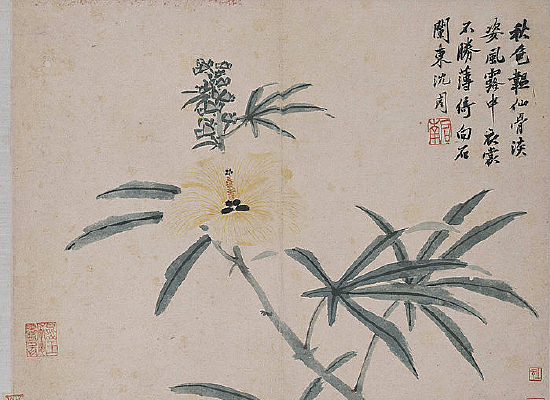 秋色韞仙骨淡
姿風露中衣裳
不勝薄倚向石
闌東沈周